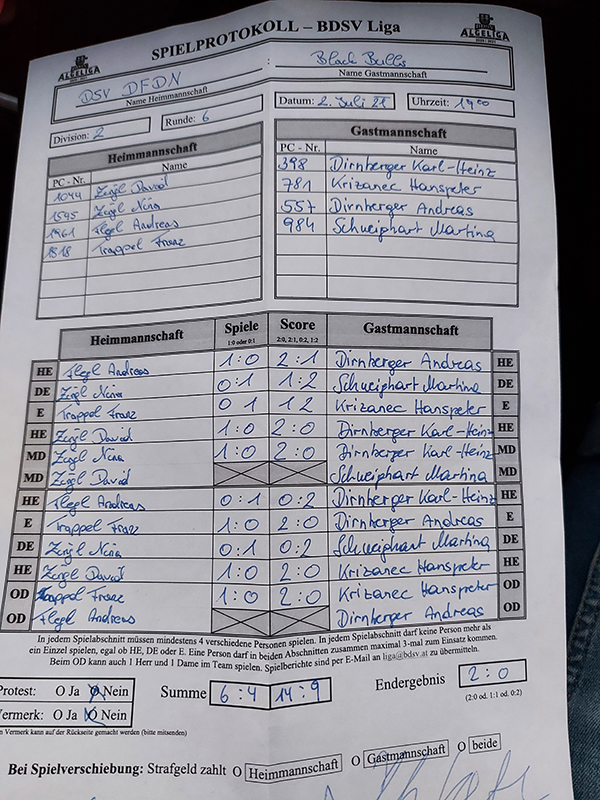 SPIELPROTOKOLL – BDSV Liga
ALGELIGA
ALGELIGA
DSV DFDN : Black Bulls
Name Heimmannschaft Name Gastmannschaft
Division: 2 Runde: 6 Datum: 2. Juli 21 Uhrzeit: 14 00
Heimmannschaft Gastmannschaft
PC - Nr. Name PC - Nr. Name
1044 Zirgl David 398 Dirnberger Karl-Heinz
1545 Zirgl Nina 781 Krizanec Hanspeter
1961 Flegl Andreas 557 Dirnberger Andreas
1818 Trappel Franz 984 Schweiphart Martina
Heimmannschaft Spiele Score Gastmannschaft
1:0 oder 0:1 2:0, 2:1, 0:2, 1:2
HE Flegl Andreas 1:0 2:1 Dirnberger Andreas HE
DE Zirgl Nina 0:1 1:2 Schweiphart Martina DE
E Trappel Franz 0 1 1 2 Krizanec Hanspeter E
HE Zirgl David 1:0 2:0 Dirnberger Karl-Heinz HE
MD Zirgl Nina 1:0 2:0 Dirnberger Karl-Heinz MD
MD Zirgl David Schweiphart Martina MD
HE Flegl Andreas 0:1 0:2 Dirnberger Karl-Heinz HE
E Trappel Franz 1:0 2:0 Dirnberger Andreas E
DE Zirgl Nina 0:1 0:2 Schweiphart Martina DE
HE Zirgl David 1:0 2:0 Krizanec Hanspeter HE
OD Trappel Franz 1:0 2:0 Krizanec Hanspeter OD
OD Flegl Andreas Dirnberger Andreas OD
In jedem Spielabschnitt müssen mindestens 4 verschiedene Personen spielen. In jedem Spielabschnitt darf keine Person mehr als
ein Einzel spielen, egal ob HE, DE oder E. Eine Person darf in beiden Abschnitten zusammen maximal 3-mal zum Einsatz kommen.
Beim OD kann auch 1 Herr und 1 Dame im Team spielen. Spielberichte sind per E-Mail an liga@bdsv.at zu übermitteln.
Protest: O Ja O Nein Summe 6:4 14:9 Endergebnis 2:0
Vermerk: O Ja O Nein (2:0 od. 1:1 od. 0:2)
en Vermerk kann auf der Rückseite gemacht werden (bitte mitsenden)
Bei Spielverschiebung: Strafgeld zahlt O Heimmannschaft O Gastmannschaft O beide